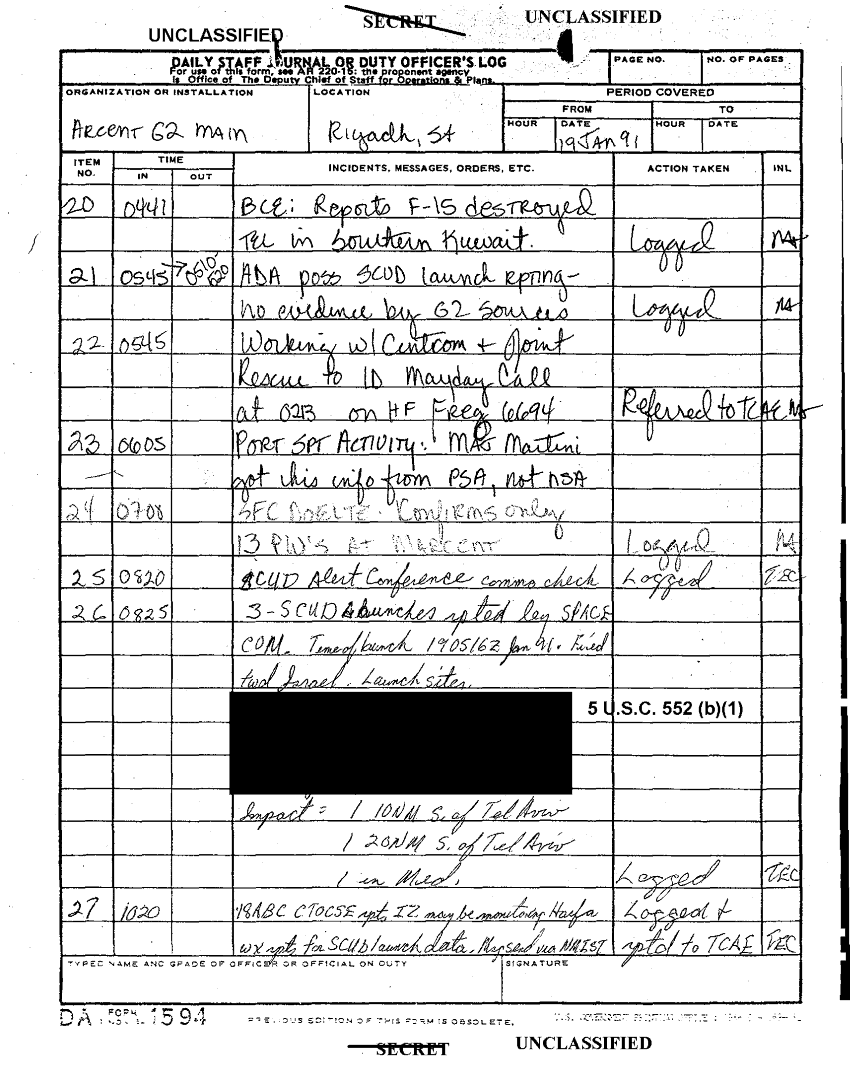 SECRET UNCLASSIFIED
UNCLASSIFIED
DAILY STAFF JOURNAL OR DUTY OFFICER'S LOG
For use of this form, see AR 220-15; the proponent agency
is Office of The Deputy Chief of Staff for Operations & Plans.
PAGE NO. NO. OF PAGES
ORGANIZATION OR INSTALLATION LOCATION PERIOD COVERED
FROM TO
HOUR DATE HOUR DATE
ARCENT G2 MAIN Riyadh, SA 19 JAN 91
ITEM NO. TIME INCIDENTS, MESSAGES, ORDERS, ETC. ACTION TAKEN INL
IN OUT
20 0441 BCE: Reports F-15 destroyed
TEL in Southern Kuwait. Logged
21 0545 0510-520 ADA poss SCUD launch rpting-
no evidence by G2 Sources Logged
22 0545 Working w/ Centcom + Joint
Rescue to ID Mayday Call
at 0213 on HF Freq 6694 Referred to TCAE
23 0605 PORT SPT ACTIVITY: MAJ Martini
got this info from PSA, not NSA
24 0708 SFC Confirms only
13 PW'S AT MARCENT Logged
25 0820 SCUD Alert Conference commo check Logged TEC
26 0825 3-SCUD launches rpted by SPACE
COM. Time of launch 190516Z Jan 91. Fired
twd Israel. Launch sites.
5 U.S.C. 552 (b)(1)
Impact = 1 10NM S. of Tel Aviv
1 20NM S. of Tel Aviv
1 in Med. Logged TEC
27 1020 18ABC CTOCSE rpt, IZ may be monitoring Haifa Logged +
wx rpts for SCUD launch data. Msg send via rptd to TCAE TEC
TYPED NAME AND GRADE OF OFFICER OR OFFICIAL ON DUTY SIGNATURE
DA FORM 1594 PREVIOUS EDITION OF THIS FORM IS OBSOLETE.
SECRET UNCLASSIFIED